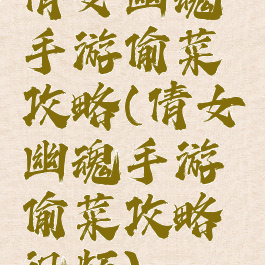 倩女幽魂
手游偷菜
攻略(倩女
幽魂手游
偷菜攻略
视频)